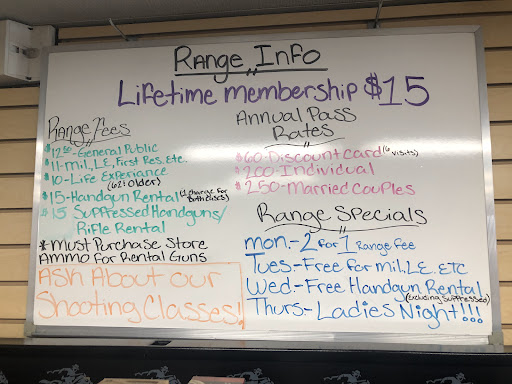 Range Info
Lifetime membership $15
Range Fees
$12.50 - General Public
$11 - mil, LE, First Res. Etc.
$10 - Life Experiance
(62 & Older)
$15 - Handgun Rental (1 charge for both clses)
$15 Suppressed Handguns/
Rifle Rental
* Must Purchase Store
Ammo For Rental Guns
Ask About our
Shooting Classes!
Annual Pass
Rates
$60 - Discount Card (6 visits)
$200 Individual
$250 - Married Couples
Range Specials
Mon. - 2 for 1 Range Fee
Tues - Free for mil. L.E. ETC
Wed - Free Handgun Rental
(Excluding Suppressed)
Thurs - Ladies Night!!!